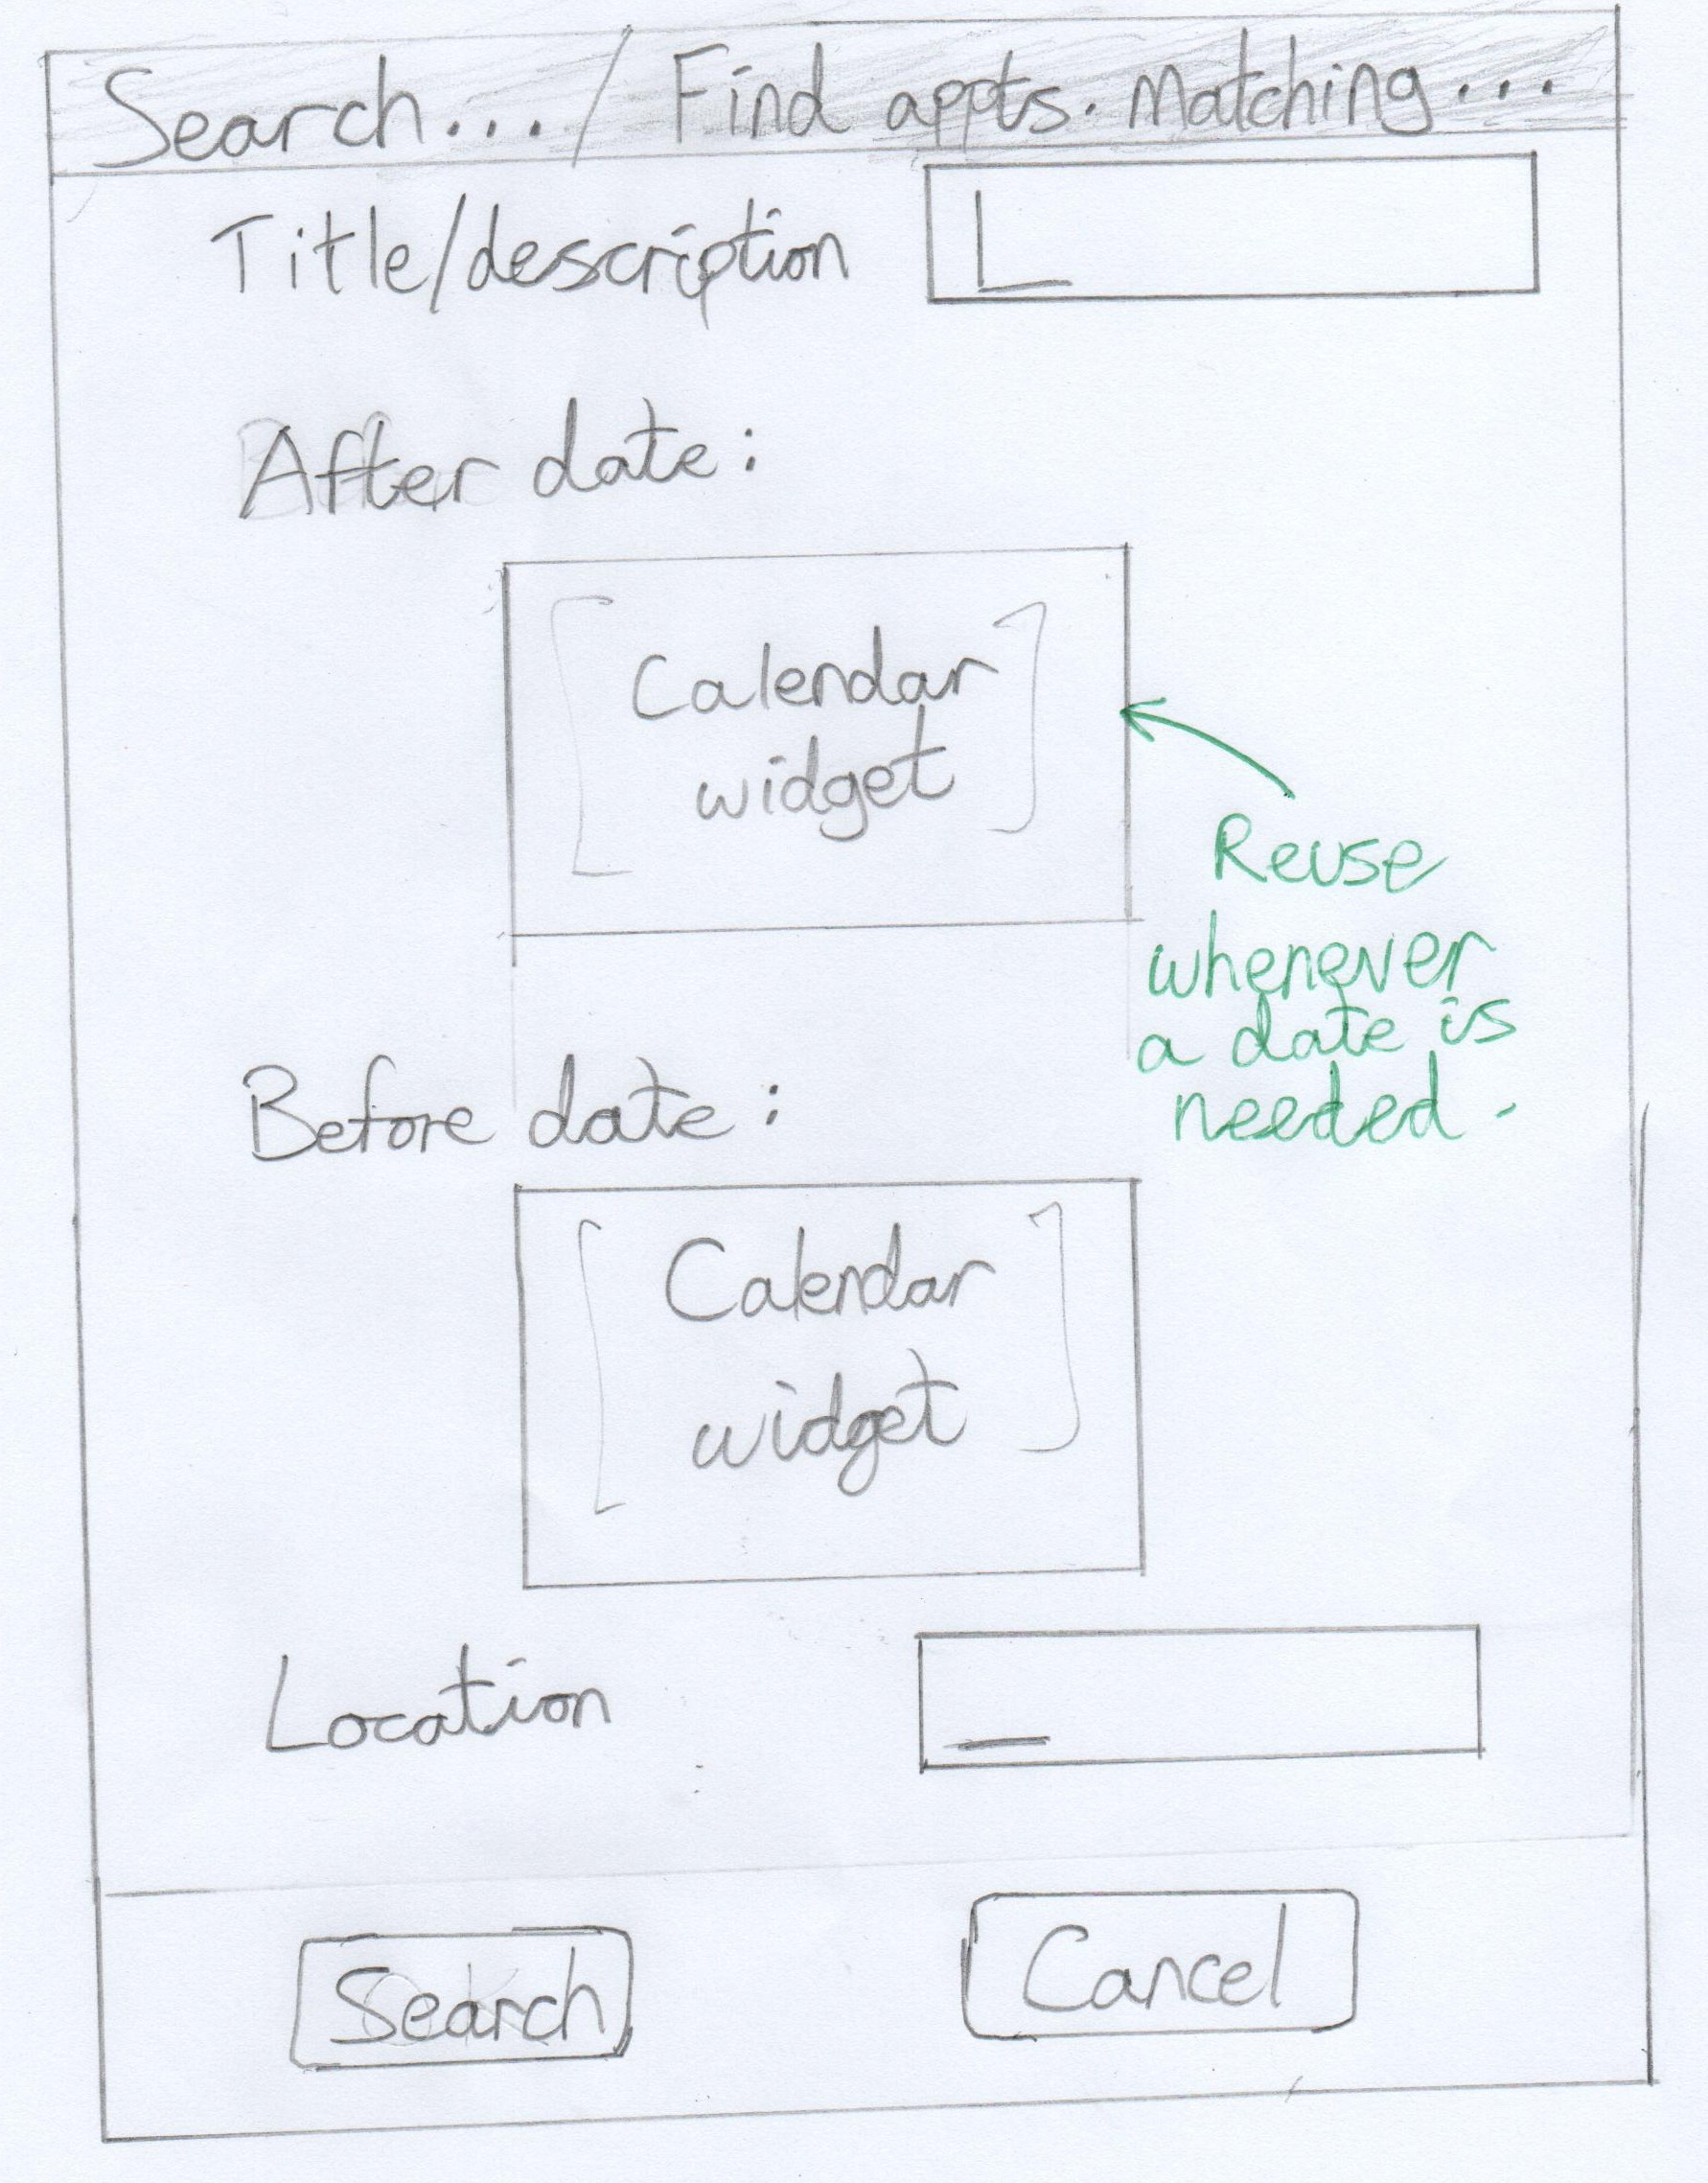 Search... / Find appts. matching...
Title/description
After date:
Calendar
widget
Reuse
whenever
a date is
needed.
Before date:
Calendar
widget
Location
Search
Cancel